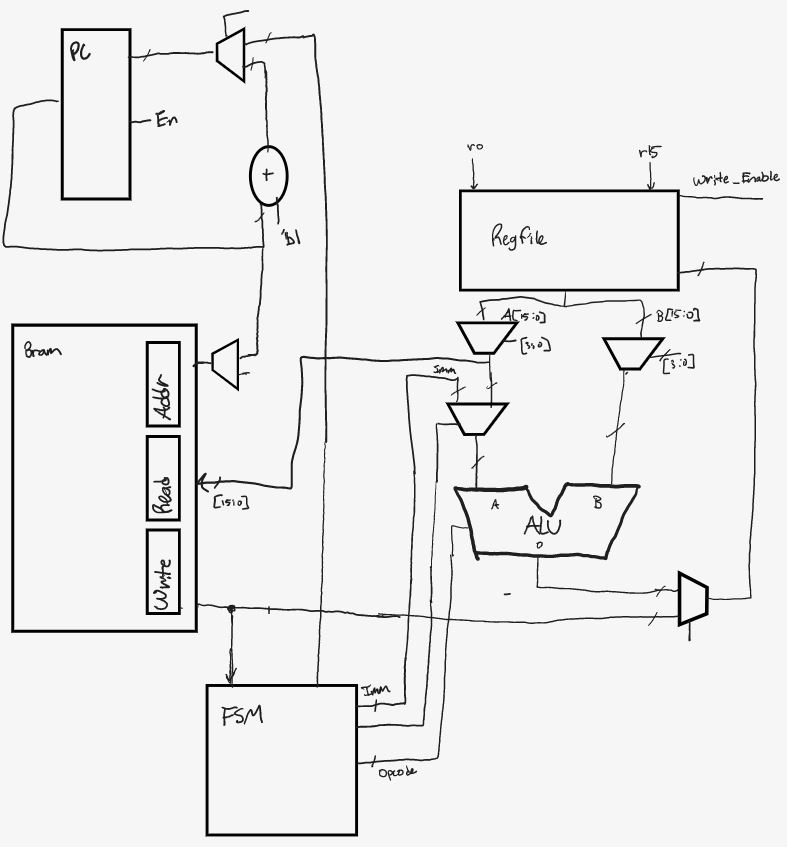 PC
En
+
'B1
r0
r15
Write_Enable
Regfile
A[15:0]
B[15:0]
[3:0]
[3:0]
Bram
Addr
Read
Write
[15:0]
Imm
A
B
ALU
O
FSM
Imm
Opcode